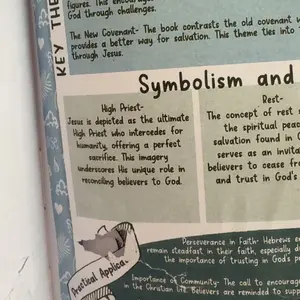 figures. This encourages
God through challenges.
The New Covenant- The book contrasts the old covenant
provides a better way for salvation. This theme ties into
through Jesus.
KEY THE
Symbolism and
High Priest-
Jesus is depicted as the ultimate
High Priest who intercedes for
humanity, offering a perfect
sacrifice. This imagery
underscores His unique role in
reconciling believers to God.
Rest-
The concept of rest
the spiritual peac
salvation found in
serves as an invita
believers to cease fr
and trust in God's
Practical Applica
Perseverance in Faith- Hebrews en
remain steadfast in their faith, especially d
the importance of trusting in God's p
Importance of Community- The call to encourag
in the Christian life. Believers are reminded to supp